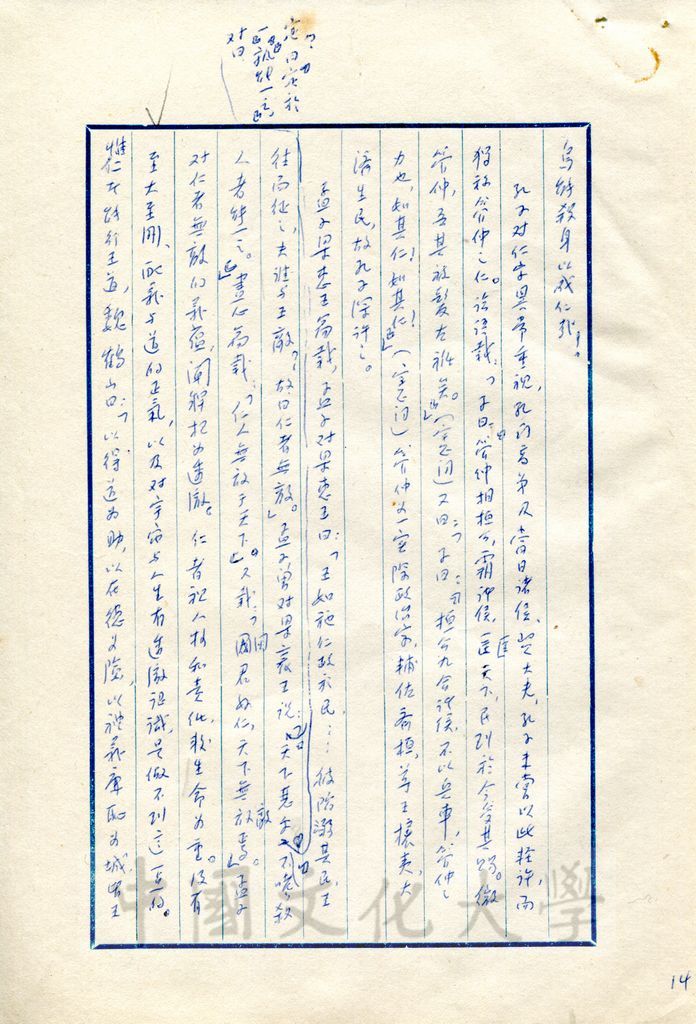 烏能殺身以成仁哉！
孔子對仁字異常重視，孔門高弟及當日諸侯、賢大夫，孔子未嘗以此輕許而
獨稱管仲之仁。論語載：「子曰：管仲相桓公，霸諸侯，一匡天下，民到於今受其賜。微
管仲，吾其被髮左衽矣。」（憲問）又曰：「子曰：桓公九合諸侯，不以兵車，管仲之
力也，如其仁！如其仁！」（憲問）管仲乃一實際政治家，輔佐齊桓，尊王攘夷，大
濟生民，故孔子深許之。
孟子梁惠王篇載，孟子對梁惠王曰：「王如施仁政於民……彼陷溺其民，王
往而征之，夫誰與王敵？故曰仁者無敵。」孟子曾對梁襄王說：「天下惡乎
定？曰定於一。孰能一之？
對曰
不嗜殺
人者能一之。」盡心篇載：「仁人無敵于天下。」又載：「國君好仁，天下無敵焉。」孟子
對仁者無敵的義蘊，闡解極為透徹。仁者視人格和責任，較生命為重。沒有
至大至剛、配義與道的正氣，以及對宇宙與人生有透徹認識，是做不到這一點的。
惟仁者能行王道，魏鶴山曰：「以得道為助，以在德為險，以禮義廉恥為城，

中國文化大學
14